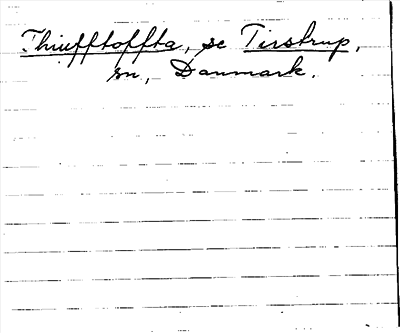 Thiufftoffta, se Tirstrup,
sn, Danmark.